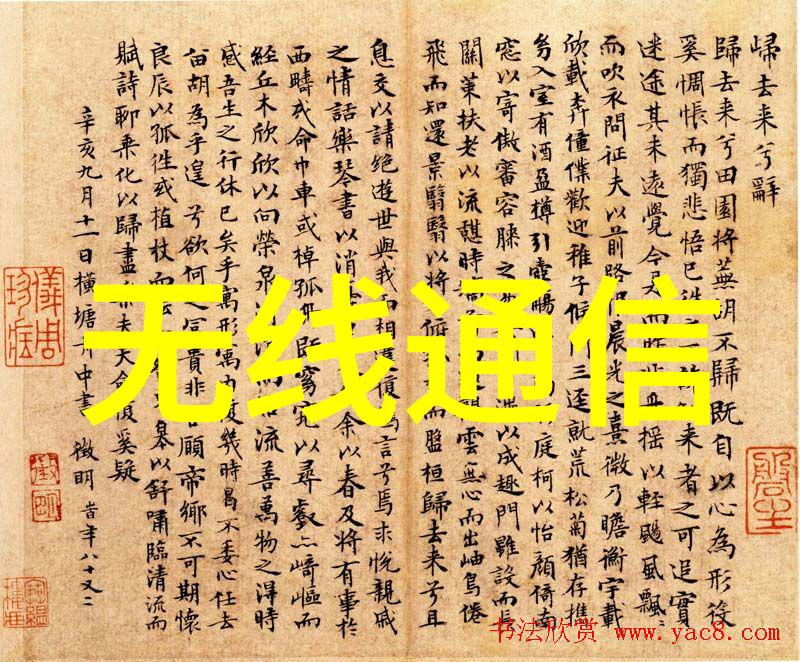 歸去来兮辭
歸去来兮田園將蕪胡不歸既自以心為形役
奚惆悵而獨悲悟已往之来者之可追實
迷途其未遠覺今是而昨非舟摇以輕颺風飄〻
而吹衣問征夫以前路恨晨光之熹微乃瞻衡宇載
欣載奔僮僕歡迎稚子候門三逕就荒松菊猶存携
幼入室有酒盈樽引壺觴庭柯以怡顔倚南
窓以寄傲審容膝之涉以成趣門雖設而長
關策扶老以流憩時雲無心而出岫鳥倦
飛而知還景翳翳以將而盤桓歸去来兮且
息交以請絶遊世與我而相遺復言兮焉求悦親戚
之情話樂琴書以消余以春及将有事於
西疇或命巾車或棹孤舟既窈窕以尋壑亦崎嶇而
經丘木欣欣以向榮泉流善萬物之得時
感吾生之行休已矣乎寓形寓内復幾時曷不委心任去
留胡為乎遑兮欲何之富貴非吾願帝鄉不可期懷
良辰以孤往或植杖而皋以舒嘯臨清流而
賦詩聊乘化以歸盡樂夫天命復奚疑
辛亥九月十一日橫塘舟中書 徵明 時年八十又二
无线通信
书法欣赏 www.yac8.com